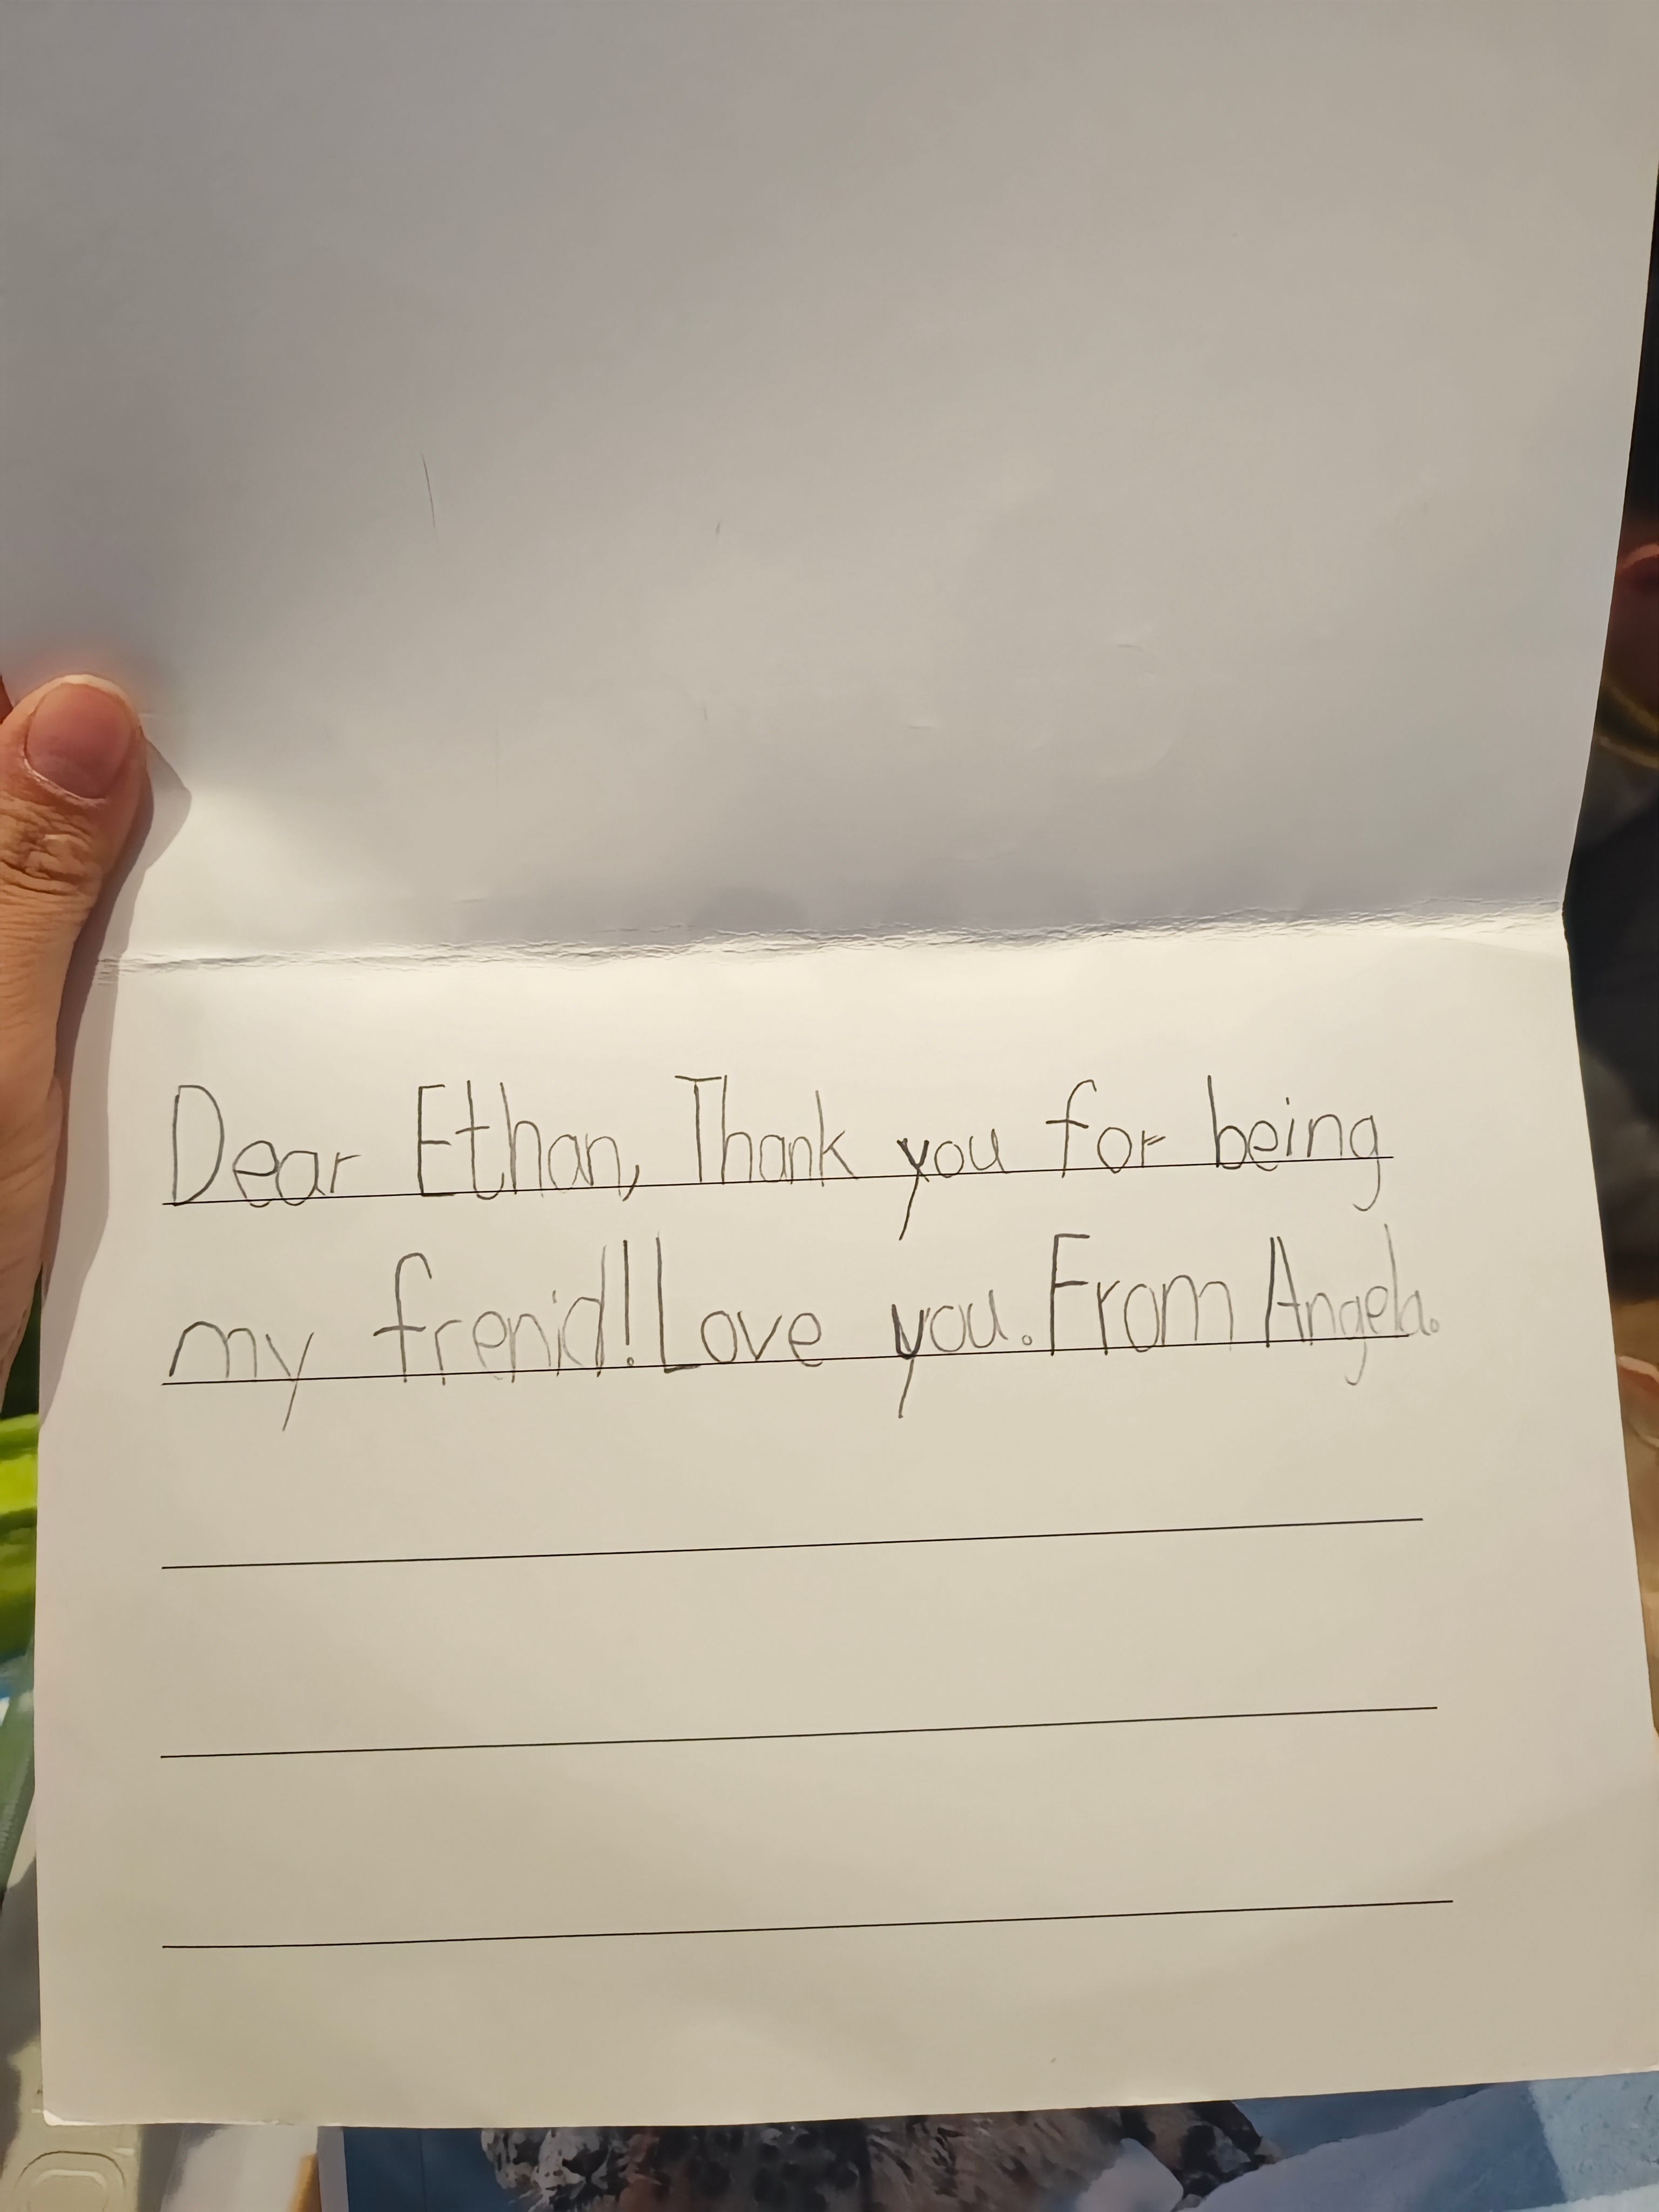 Dear Ethan, Thank you for being
my frenid! Love you. From Angela.